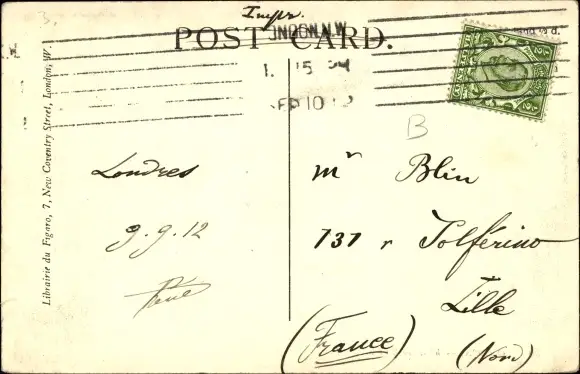 3.
Impr.
POST CARD.
LONDON.N.W.
1. 15 PM
SEP 10 12
B
Londres
9.9.12
René
Mr Blin
137 r Solférino
Lille
(France) (Nord)
Librairie du Figaro, 7, New Coventry Street, London, W.